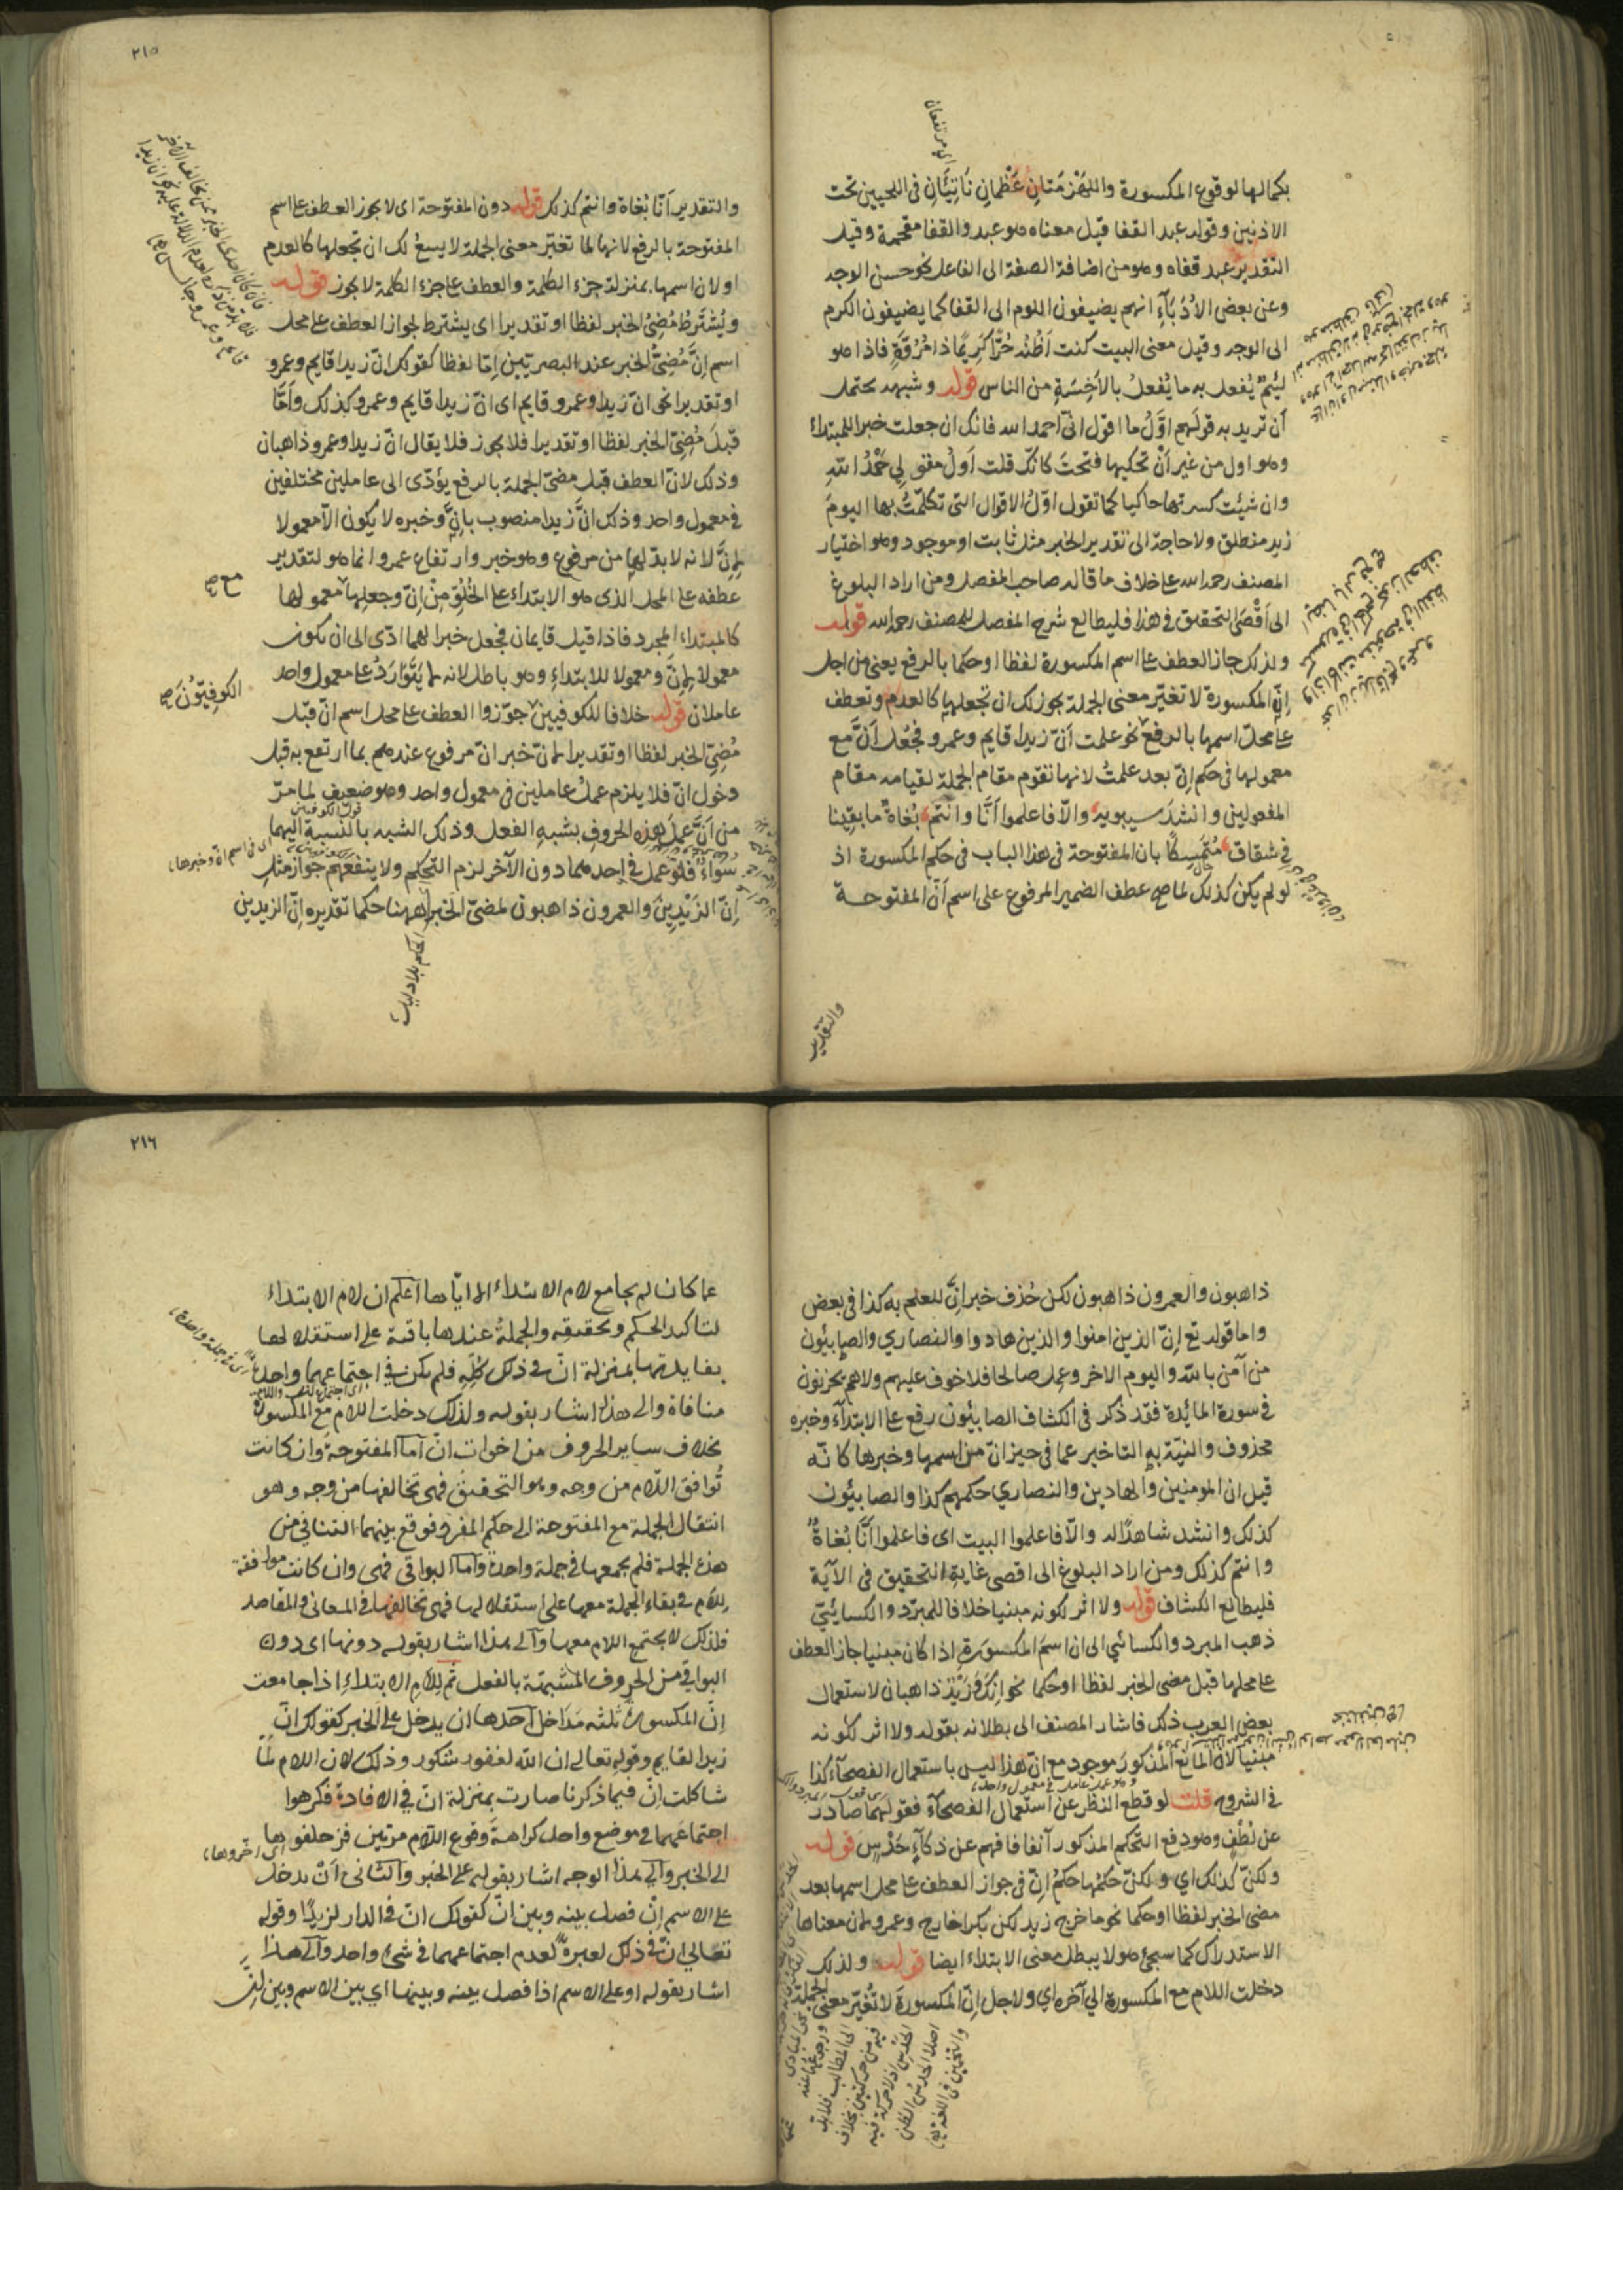 بكمالها لوقوع المكسورة واللهزمتان عظمان ناتئان فى اللحيين تحت
الاذنين وقوله عبد القفا قيل معناه هو عبد والقفا مقحمة وقيل
التقدير عبد قفاه وهو من اضافة الصفة الى الفاعل نحو حسن الوجه
وعن بعض الأدباء انهم يضيفون اللوم الى القفا كما يضيفون الكرم
الى الوجه وقيل معنى البيت كنت اظنه حرا كريما ذا مروة فاذا هو
لئيم يفعل به ما يفعل بالأخسة من الناس قوله وشبهه يحتمل
أن تريد به قولهم اول ما اقول انى احمد الله فانك ان جعلت خبرا للمبتداء
وهو اول من غير أن تحكيها فتحت كانك قلت اول مقولى حمد الله
وان شئت كسرتها حاكيا كما تقول اول الاقوال التى تكلمت بها اليوم
زيد منطلق ولا حاجة الى تقدير الخبر مثل ثابت او موجود وهو اختيار
المصنف رحمه الله على خلاف ما قاله صاحب المفصل ومن اراد البلوغ
الى اقصى التحقيق فى هذا فليطالع شرح المفصل للمصنف رحمه الله قوله
ولذلك جاز العطف على اسم المكسورة لفظا او حكما بالرفع يعنى من اجل
إن المكسورة لا تغير معنى الجملة يجوز لك ان تجعلها كالعدم وتعطف
على محل اسمها بالرفع نحو علمت أن زيدا قايم وعمرو فجعل أن مع
معمولها فى حكم إن بعد علمت لانها تقوم مقام الجملة لقيامه مقام
المفعولين وانشد سيبويه والا فاعلموا أنا وانتم بغاة ما بقينا
فى شقاق متمسكا بان المفتوحة فى هذا الباب فى حكم المكسورة اذ
لو لم يكن كذلك لما صح عطف الضمير المرفوع على اسم أن المفتوحة
والتقدير
٢١٥
والتقدير أنا بغاة وانتم كذلك قوله دون المفتوحة اى لا يجوز العطف على اسم
المفتوحة بالرفع لانها لما تغير معنى الجملة لا يسغ لك ان تجعلها كالعدم
او لان اسمها بمنزلة جزء الكلمة والعطف على جزء الكلمة لا يجوز قوله
ويشترط مضى الخبر لفظا او تقديرا اى يشترط لجواز العطف على محل
اسم إن مضى الخبر عند البصريين إما لفظا كقولك ان زيدا قايم وعمرو
او تقديرا نحو ان زيدا وعمرو قايم اى ان زيدا قايم وعمرو كذلك وأما
قبل مضى الخبر لفظا او تقديرا فلا يجوز فلا يقال ان زيدا وعمرو ذاهبان
وذلك لان العطف قبل مضى الجملة بالرفع يؤدى الى عاملين مختلفين
فى معمول واحد وذلك ان زيدا منصوب بان وخبره لا يكون الا معمولا
لإن لانه لا بد لها من مرفوع وهو خبر وارتفاع عمرو انما هو لتقدير
عطفه على المحل الذى هو الابتداء على الخلو من إن وجعلها معمولها
مع صح
كالمبتداء المجرد فاذا قيل قايمان فجعل خبرا لهما ادى الى ان يكون
معمولا لإن ومعمولا للابتداء وهو باطل لانه لا يتوارد على معمول واحد
عاملان قوله خلافا للكوفيين جوزوا العطف على محل اسم ان قبل
الكوفيون صح
مضى الخبر لفظا او تقديرا لان خبر ان مرفوع عندهم بما ارتفع به قبل
دخول ان فلا يلزم عمل عاملين فى معمول واحد وهو ضعيف لما مر
من أن عمل هذه الحروف بشبه الفعل وذلك الشبه بالنسبة اليهما
سواء فلو عمل فى احدهما دون الآخر لزم التحكم ولا ينفعهم جواز مثل
اى فى اسم ان وخبرها
إن الزيدين والعمرون ذاهبون لمضى الخبر ههنا حكما تقديره إن الزيدين
الحكم بلا دليل
ذاهبون والعمرون ذاهبون لكن حذف خبر إن للعلم به كذا فى بعض
واما قوله تع إن الذين امنوا والذين هادوا والنصارى والصابئون
من آمن بالله واليوم الاخر وعمل صالحا فلا خوف عليهم ولا هم يحزنون
فى سورة المائدة فقد ذكر فى الكشاف الصابئون رفع على الابتداء وخبره
محذوف والنية به التاخير عما فى حيز ان من اسمها وخبرها كانه
قيل ان المومنين والهادين والنصارى حكمهم كذا والصابئون
كذلك وانشد شاهدا له والا فاعلموا البيت اى فاعلموا أنا بغاة
وانتم كذلك ومن اراد البلوغ الى اقصى غاية التحقيق فى الآية
فليطالع الكشاف قوله ولا اثر لكونه مبنيا خلافا للمبرد والكسائى
ذهب المبرد والكسائى الى ان اسم المكسورة اذا كان مبنيا جاز العطف
على محلها قبل مضى الخبر لفظا او حكما نحو إنك وزيد ذاهبان لاستعمال
بعض العرب ذلك فاشار المصنف الى بطلانه بقوله ولا اثر لكونه
مبنيا لان المانع المذكور موجود مع ان هذا ليس باستعمال الفصحاء كذا
فى الشروح قلت لو قطع النظر عن استعمال الفصحاء فقولهما صادر
عن لطف وهو دفع التحكم المذكور آنفا فافهم عن ذكاء حدس قوله
ولكن كذلك اى ولكن حكمها حكم إن فى جواز العطف على محل اسمها بعد
مضى الخبر لفظا او حكما نحو ما خرج زيد لكن بكرا خارج وعمرو لان معناها
الاستدراك كما سيجئ وهو لا يبطل معنى الابتداء ايضا قوله ولذلك
دخلت اللام مع المكسورة الى آخره اى ولاجل إن المكسورة لا تغير معنى الجملة
٢١٦
عما كان لم يجامع لام الابتداء الا اياها اعلم ان لام الابتداء
لتاكيد الحكم وتحقيقه والجملة عندها باقية على استقلالها
بفايدتها بمنزلة ان فى ذلك كله فلم يكن فى اجتماعهما واحدا
اى فى جملة واحدة
منافاة والى هذا اشار بقوله ولذلك دخلت اللام مع المكسورة
بخلاف ساير الحروف من اخوات ان أما المفتوحة وان كانت
توافق اللام من وجه وهو التحقيق فهى تخالفها من وجه وهو
انتقال الجملة مع المفتوحة الى حكم المفرد فوقع بينهما التنافى من
هذه الجملة فلم يجمعها فى جملة واحدة وأما البواقى فهى وان كانت موافقة
للام فى بقاء الجملة معها على استقلالها فهى تخالفها فى المعانى والمقاصد
فلذلك لا يجتمع اللام معها والى هذا اشار بقوله دونها اى دون
البواقى من الحروف المشبهة بالفعل ثم للام الابتداء اذا جامعت
إن المكسورة ثلثه مداخل احدها ان يدخل على الخبر كقولك ان
زيدا لقايم وقوله تعالى ان الله لغفور شكور وذلك لان اللام لما
شاكلت إن فيما ذكرنا صارت بمنزلة ان فى الافادة فكرهوا
اجتماعهما فى موضع واحد كراهة وقوع اللام مرتين فزحلفوها
اى اخروها
الى الخبر والى هذا الوجه اشار بقوله على الخبر والثانى أن يدخل
على الاسم إن فصل بينه وبين ان كقولك ان فى الدار لزيدا وقوله
تعالى ان فى ذلك لعبرة لعدم اجتماعهما فى شئ واحد والى هذا
اشار بقوله او على الاسم اذا فصل بينه وبينها اى بين الاسم وبين إن